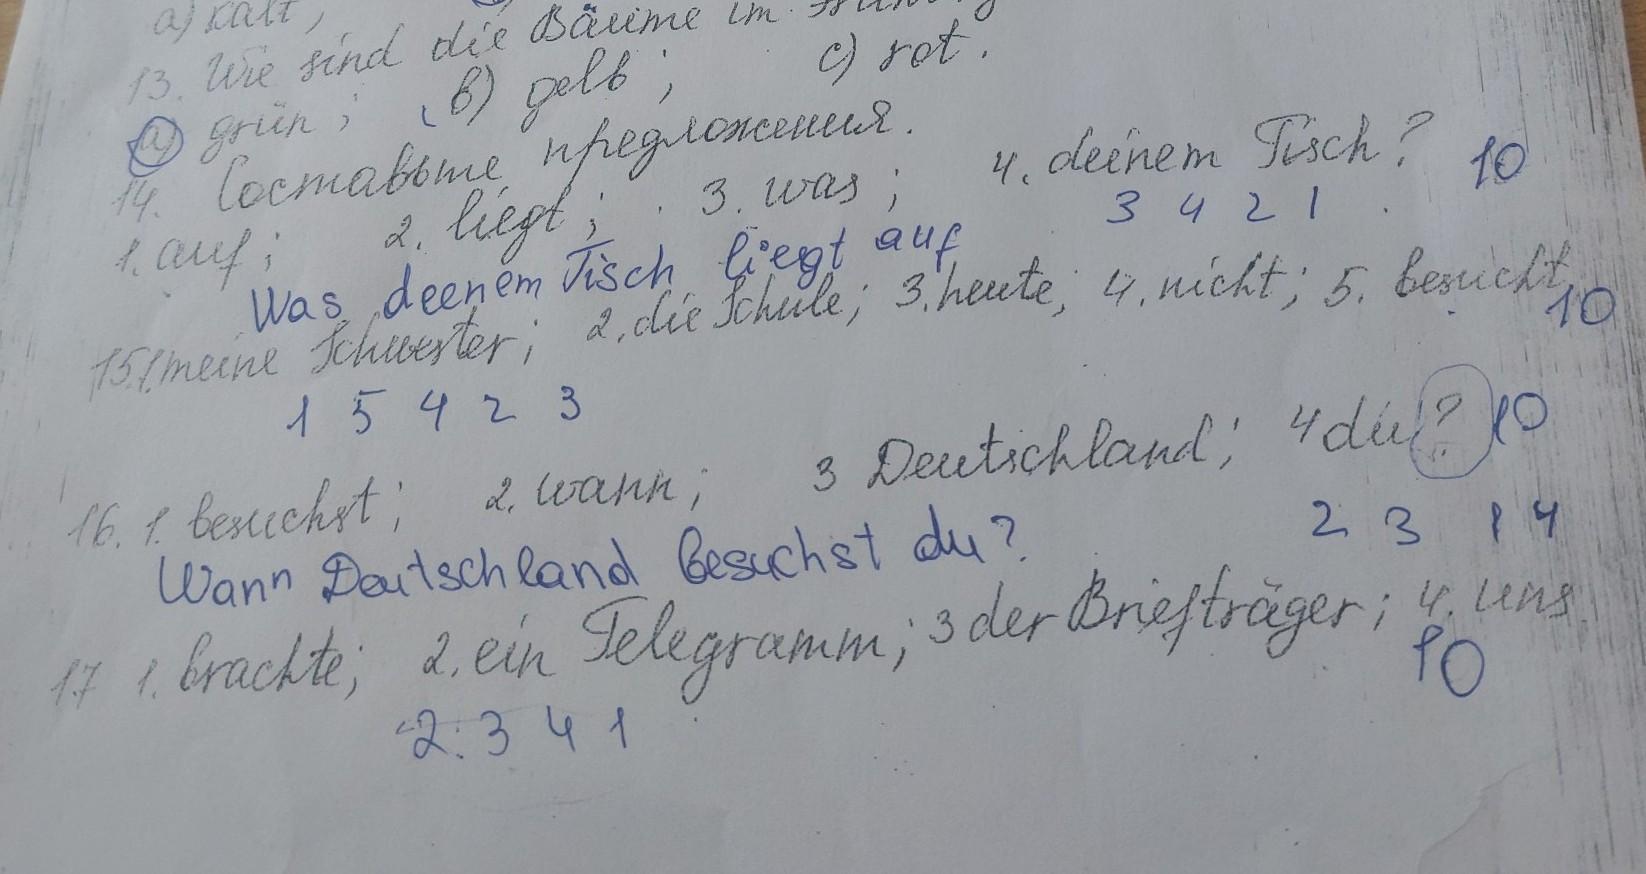 a) kalt,
13. Wie sind die Bäume im
a) grün; b) gelb; c) rot.
14. Составьте предложения.
1. auf; 2. liegt; 3. was; 4. deinem Tisch? 10
3 4 2 1
Was deenem Tisch liegt auf
15. 1. meine Schwester; 2. die Schule; 3. heute; 4. nicht; 5. besucht 10
1 5 4 2 3
16. 1. besuchst; 2. wann; 3 Deutschland; 4 du? 10
2 3 1 4
Wann Deutschland besuchst du?
17 1. brachte; 2. ein Telegramm; 3 der Briefträger; 4. uns
10
2. 3 4 1